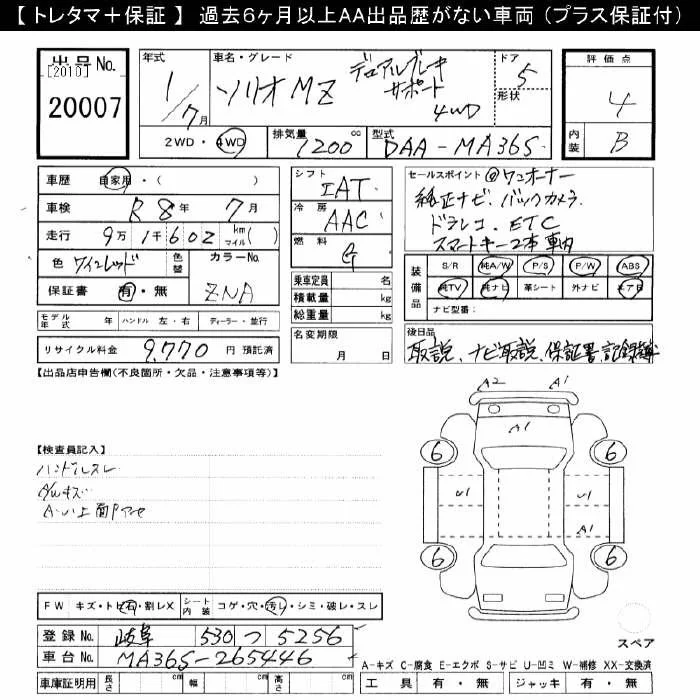 【 トレタマ＋保証 】 過去6ヶ月以上AA出品歴がない車両 (プラス保証付)
出品No.
[2010]
20007
年式
1/7月
車名・グレード
ソリオMZ デュアルブレーキサポート 4WD
ドア
5
形状
評価点
4
内装
B
2WD・4WD
排気量
1200 cc
型式
DAA-MA36S
車歴 自家用・( )
車検 R8年 7月
走行 9万 1千 602 km マイル( )
色 ワインレッド 色替 カラーNo.
保証書 有・無 ZNA
シフト
IAT
冷房
AAC
燃料
G
乗車定員 名
積載量 kg
総重量 kg
セールスポイント @ワンオーナー
純正ナビ、バックカメラ
ドラレコ、ETC
スマートキー2本車内
装備品
S/R 純A/W P/S P/W ABS
純TV 純ナビ 革シート 外ナビ エアB
ナビ型番：
モデル年式 年 ハンドル 左・右 ディーラー・並行
リサイクル料金 9,770 円 預託済
名変期限
月 日
後日品
取説、ナビ取説、保証書、記録簿
【出品店申告欄(不良箇所・欠品・注意事項等)】
【検査員記入】
ハンドルスレ
A/Wキズ
A2 A1
A1
6 6
U1 U1
A1
6 6
スペア
FW キズ・トビ石・割レX シート内装 コゲ・穴・汚レ・シミ・破レ・スレ
登録No. 岐阜 530 つ 5256
車台No. MA36S-265446
A-キズ C-腐食 E-エクボ S-サビ U-凹ミ W-補修 XX-交換済
車庫証明用 長さ cm 幅 cm 高さ cm
工具 有・無 ジャッキ 有・無